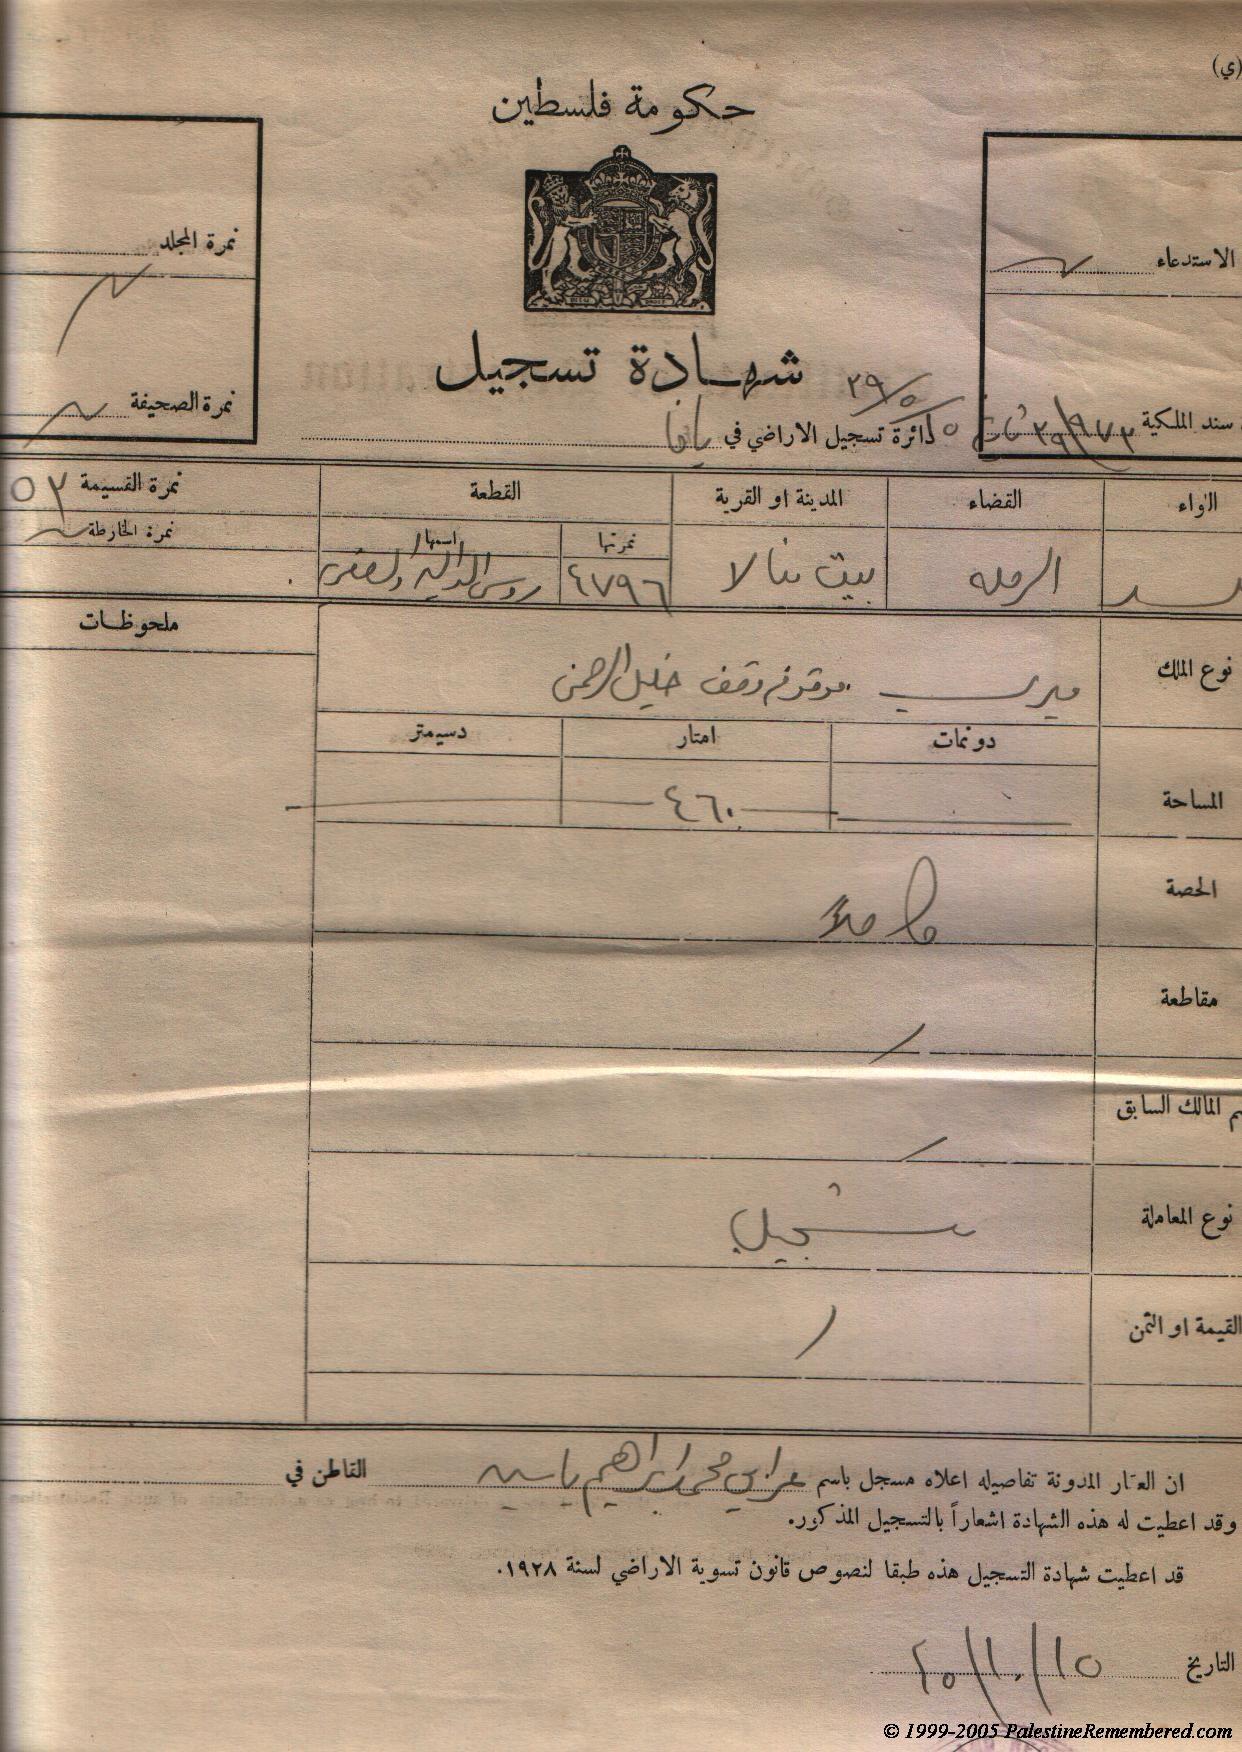 (ي)
حكومة فلسطين
نمرة المجلد
الاستدعاء
شهادة تسجيل
نمرة الصحيفة
سند الملكية
٣٩/٥
دائرة تسجيل الاراضي في يافا
الواء
القضاء
المدينة او القرية
القطعة
نمرة القسيمة ٥٣
نمرتها
اسمها
نمرة الخارطة
الرمله
بيت نبالا
٤٧٩٦
ملحوظات
نوع الملك
ميري موقوفه وقف خليل الرحمن
دونمات
امتار
دسيمتر
المساحة
٤٦٠
الحصة
كاملا
مقاطعة
م المالك السابق
نوع المعاملة
تسجيل
القيمة او الثمن
ان العقار المدونة تفاصيله اعلاه مسجل باسم عرابي محمد ابراهيم ياسين القاطن في
وقد اعطيت له هذه الشهادة اشعاراً بالتسجيل المذكور.
قد اعطيت شهادة التسجيل هذه طبقا لنصوص قانون تسوية الاراضي لسنة ١٩٢٨.
التاريخ ١٥/١٠/٤٥
© 1999-2005 PalestineRemembered.com